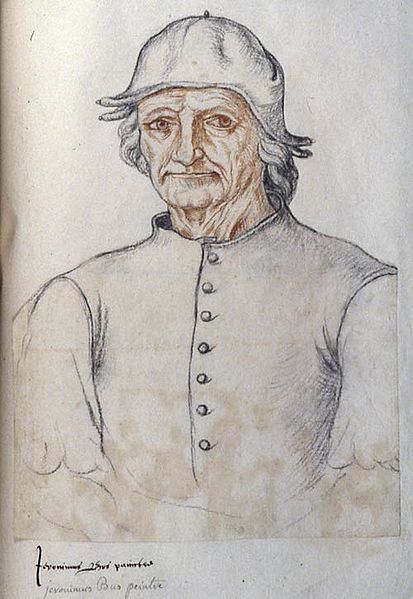 Jeronimus Bos paintre
Jeronimus Bos peintre